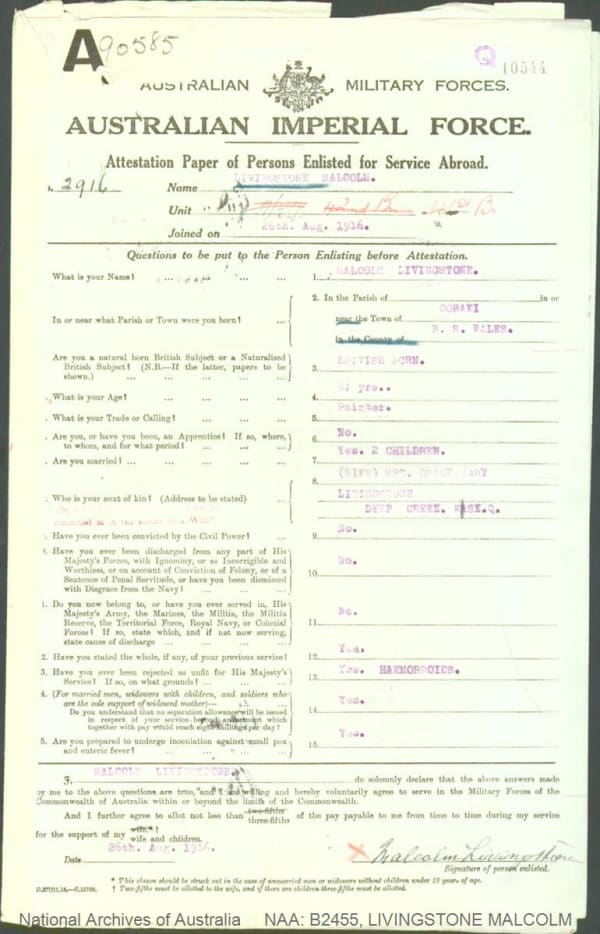 A 90585
10544
AUSTRALIAN MILITARY FORCES.
AUSTRALIAN IMPERIAL FORCE.
Attestation Paper of Persons Enlisted for Service Abroad.
2916 Name LIVINGSTONE MALCOLM.
Unit 42nd Bn 41st B
Joined on 26th. Aug. 1916.
Questions to be put to the Person Enlisting before Attestation.
What is your Name? ... ... ... 1. MALCOLM LIVINGSTONE.
2. In the Parish of in or
In or near what Parish or Town were you born? ... near the Town of CORAKI
in the County of N. S. WALES.
Are you a natural born British Subject or a Naturalized
British Subject? (N.B.—If the latter, papers to be
shown.) ... ... ... ... 3. BRITISH BORN.
What is your Age? ... ... ... 4. yrs..
What is your Trade or Calling? ... ... ... 5. Painter.
Are you, or have you been, an Apprentice? If so, where,
to whom, and for what period? ... ... ... 6. No.
Are you married? ... ... ... ... 7. Yes. 2 CHILDREN.
(WIFE) MRS. GRACE MARY
Who is your next of kin? (Address to be stated) ... 8. LIVINGSTONE
DEEP CREEK. Q.
Have you ever been convicted by the Civil Power? ... 9. No.
Have you ever been discharged from any part of His
Majesty's Forces, with Ignominy, or as Incorrigible and
Worthless, or on account of Conviction of Felony, or of a
Sentence of Penal Servitude, or have you been dismissed
with Disgrace from the Navy? ... ... ... 10. No.
1. Do you now belong to, or have you ever served in, His
Majesty's Army, the Marines, the Militia, the Militia
Reserve, the Territorial Force, Royal Navy, or Colonial
Forces? If so, state which, and if not now serving,
state cause of discharge ... ... ... 11. No.
2. Have you stated the whole, if any, of your previous service? 12. Yes.
3. Have you ever been rejected as unfit for His Majesty's
Service? If so, on what grounds? ... ... ... 13. Yes. HAEMORROIDS.
4. (For married men, widowers with children, and soldiers who
are the sole support of widowed mother)—
Do you understand that no separation allowance will be issued
in respect of your service beyond an amount which
together with pay would reach eight shillings per day? 14. Yes.
5. Are you prepared to undergo inoculation against small pox
and enteric fever? ... ... ... ... 15. Yes.
I, MALCOLM LIVINGSTONE. do solemnly declare that the above answers made
by me to the above questions are true, and I am willing and hereby voluntarily agree to serve in the Military Forces of the
Commonwealth of Australia within or beyond the limits of the Commonwealth.
And I further agree to allot not less than two-fifths three-fifths of the pay payable to me from time to time during my service
for the support of my wife*† wife and children.
Date 26th. Aug. 1916. Malcolm Livingstone
Signature of person enlisted.
* This clause should be struck out in the case of unmarried men or widowers without children under 18 years of age.
† Two-fifths must be allotted to the wife, and if there are children three-fifths must be allotted.
National Archives of Australia NAA: B2455, LIVINGSTONE MALCOLM